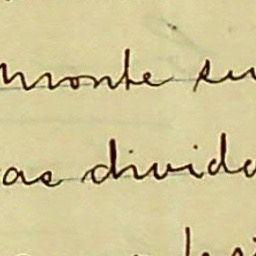 monte su
ae divida